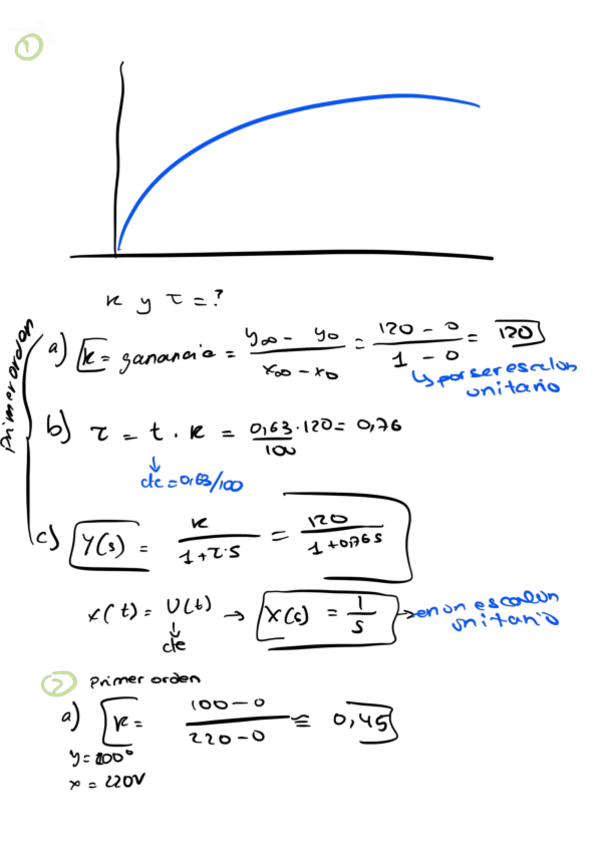 1
K y τ = ?
Primer orden
a) K = ganancia = y∞ - y0 / x∞ - x0 = 120 - 0 / 1 - 0 = 120
↳ por ser escalon
unitario
b) τ = t . K = 0,63 . 120 / 100 = 0,76
↓
cte = 0,63/100
c) Y(s) = K / 1 + τ.s = 120 / 1 + 0,76 s
x(t) = U(t) → X(s) = 1 / s → en un escalon
unitario
↓
cte
2 Primer orden
a) K = 100 - 0 / 220 - 0 ≅ 0,45
y = 100°
x = 220V